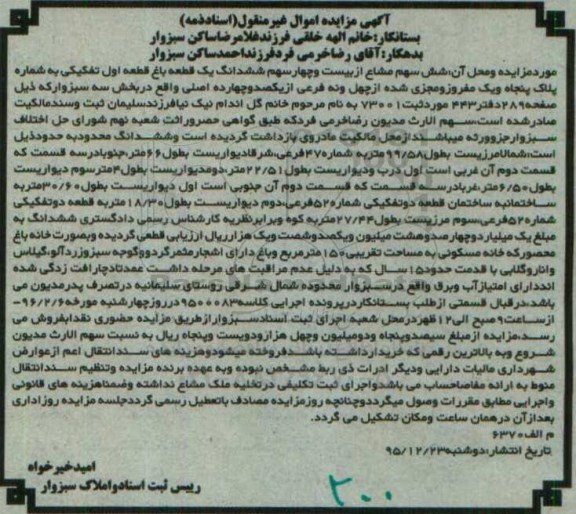 آگهی مزایده اموال غیرمنقول(اسنادذمه)
بستانکار:خانم الهه خلقی فرزندغلامرضاساکن سبزوار
بدهکار:آقای رضاخرمی فردفرزنداحمدساکن سبزوار
موردمزایده ومحل آن:شش سهم مشاع ازبیست وچهارسهم ششدانگ یک قطعه باغ قطعه اول تفکیکی به شماره
پلاک پنجاه ویک مفروزومجزی شده ازچهل ونه فرعی ازیکصدوچهارده اصلی واقع دربخش سه سبزوارکه ذیل
صفحه۲۸۹دفتر۴۴۳موردثبت۷۳۰۰۱ به نام مرحوم خانم گل اندام نیک نیافرزندسلیمان ثبت وسندمالکیت
صادرشده است،سهم الارث مدیون رضاخرمی فردکه طبق گواهی حصروراثت شعبه نهم شورای حل اختلاف
سبزوارجزوورثه میباشدازمحل مالکیت مادروی بازداشت گردیده است وششدانگ محدودبه حدودذیل
است:شمالامرزیست بطول۱۲/۵۸متربه شماره۴۷فرعی،شرقادیواریست بطول۶۶متر،جنوبادرسه قسمت که
قسمت دوم آن غربی است اول درب ودیواریست بطول۲۲/۵۱متر،دومدیواریست بطول۴مترسوم دیواریست
بطول۶/۵۰متر،غربادرسه قسمت که قسمت دوم آن جنوبی است اول دیواریست بطول۳۰/۶۰متربه
ساختمانبه ساختمان قطعه دوتفکیکی شماره۵۲فرعی،دوم دیواریست بطول۱۸/۳۰متربه قطعه دوتفکیکی
شماره۵۲فرعی،سوم مرزیست بطول۲۷/۴۴متربه کوه وبرابرنظریه کارشناس رسمی دادگستری ششدانگ به
مبلغ یک میلیاردوچهارصدوهشت میلیون ویکصدوشصت ویک هزارریال ارزیابی قطعی گردیده وبصورت خانه باغ
محصورکه خانه مسکونی به مساحت تقریبی۱۵۰مترمربع وباغ دارای اشجارمثمرگردووگوجه سبزوزردآلو،گیلاس
واناروگلابی با قدمت حدود۱۵سال که به دلیل عدم مراقبت های مرحله داشت عمدتادچارافت زدگی شده
اندداراي امتیازآب وبرق واقع درسبزوار محدوده شمال شرقی روستای سلیمانیه درتصرف پدرمدیون می
باشد،درقبال قسمتی ازطلب بستانکاردرپرونده اجرایی کلاسه۹۵۰۰۰۸۳درروزچهارشنبه مورخه۹۶/۲/۶-
ازساعت۹صبح الی۱۲ظهردرمحل شعبه اجرای ثبت اسنادسبزوارازطریق مزایده حضوری نقدابفروش می
رسد،مزایده ازمبلغ سیصدوپنجاه ودومیلیون وچهل هزارودویست وپنجاه ریال به نسبت سهم الارث مدیون
شروع وبه بالاترین رقمی که خریدارداشته باشدفروخته میشودوهزینه های سندانتقال اعم ازعوارض
شهرداری مالیات دارایی ودیگر ادرات ذی ربط مشخص نبوده وبه عهده برنده مزایده وتنظیم سندانتقال
منوط به ارائه مفاصاحساب می باشدواجرای ثبت تکلیفی درتخلیه ملک مشاع نداشته وضمناهزینه های قانونی
واجرایی مطابق مقررات وصول میگرددوچنانچه روزمزایده مصادف باتعطیل رسمی گرددجلسه مزایده روزاداری
بعدازآن درهمان ساعت ومکان تشکیل می گردد.
م الف۶۳۷۰
تاریخ انتشار:دوشنبه۹۵/۱۲/۲۳
امیدخیرخواه
رییس ثبت اسنادواملاک سبزوار
۲۰۰